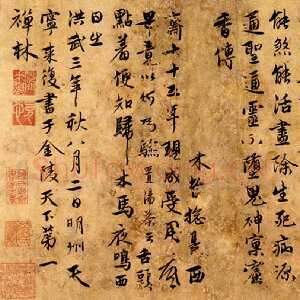 能殺能活盡除生死病源
通聖通靈不墮鬼神窠窟
香傳
木
十五年現成受用
畢竟以何為驗置湯茶去舌頭
點著便知歸木馬夜鳴西
日生
洪武三年秋八月二日明州天
寧來復書于金陵天下第一
禪林